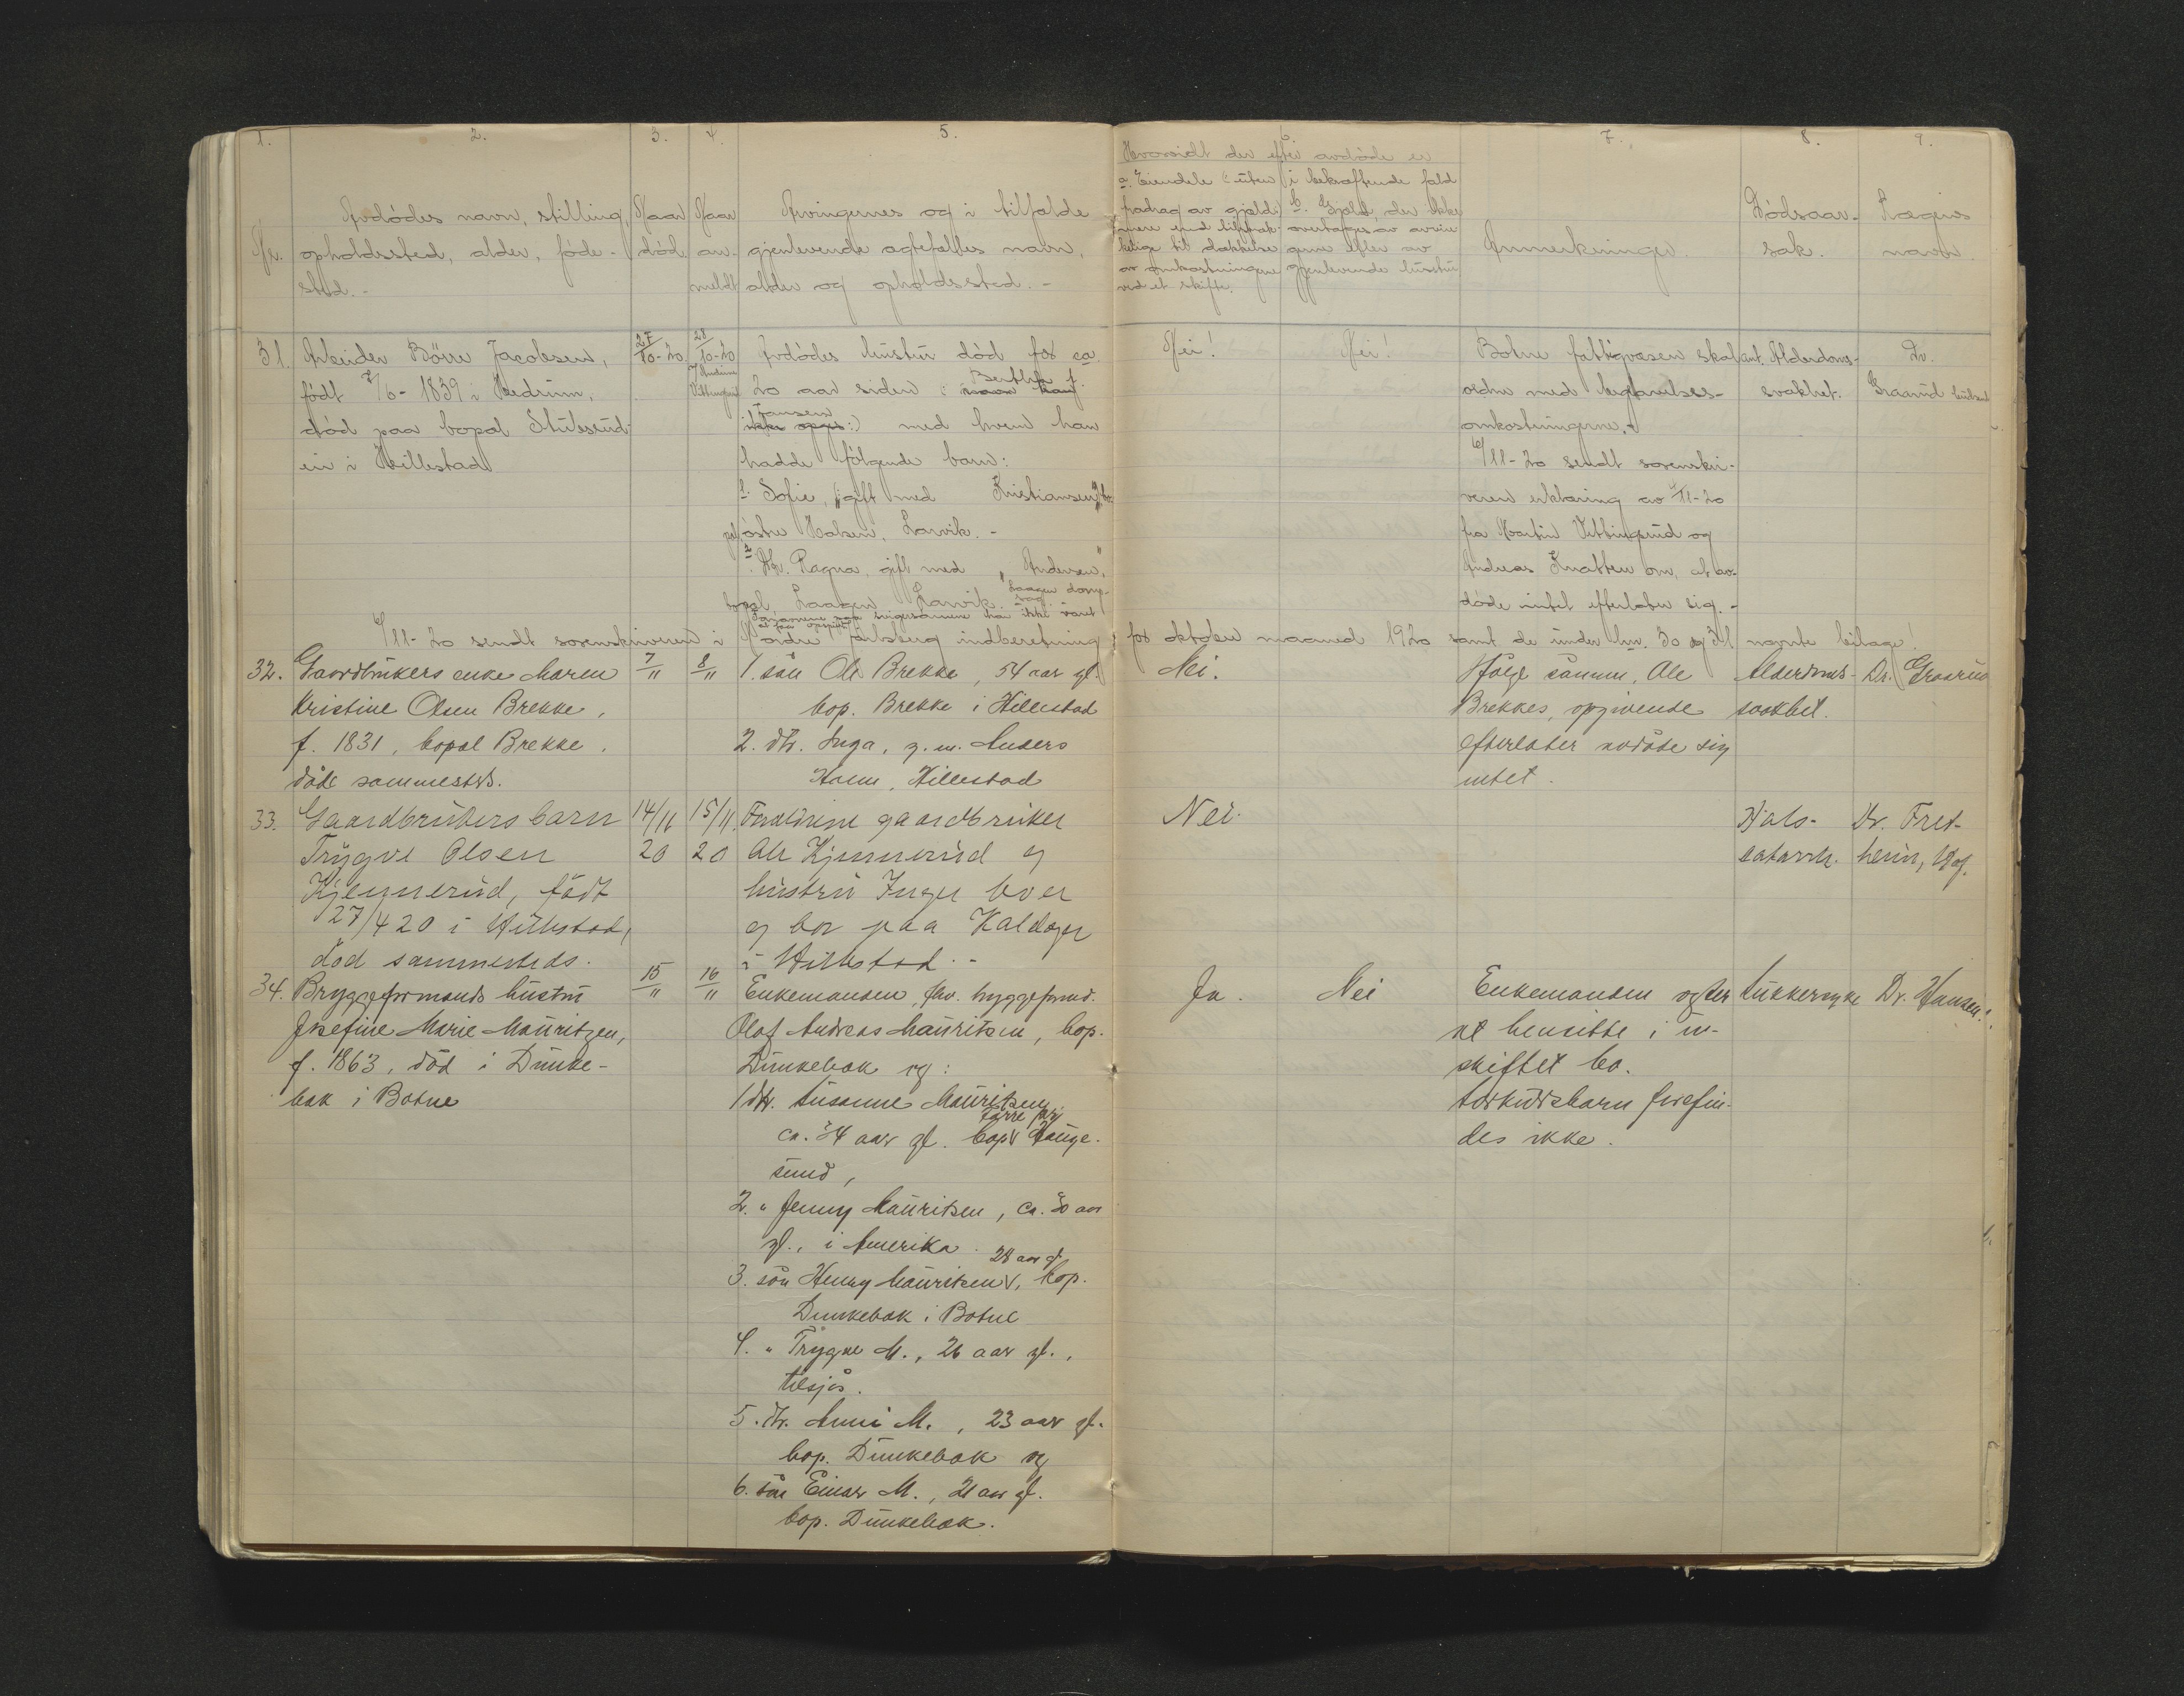 1. 2. 3. 4. 5. 6. 7. 8. 9.
Nr.
Avdödes navn, stilling,
opholdssted, alder, föde-
sted. -
Naar
död
Naar
an-
meldt
Arvingernes og i tilfælde
gjenlevende ægtefælles navn,
alder og opholdssted. -
Hvorvidt der efter avdöde er
a. Eiendele (: uten
fradrag av gjæld:)
mere end tilstræk-
kelige til dækkelse
av omkostningene
ved et skifte.
i bekræftende fald
b. Gjæld, der ikke
overtages av arvin-
gerne eller av
gjenlevende hustru
Anmerkninger.
Dödsaar-
sak.
Lægens
navn.
31. Arbeider Börre Jacobsen,
födt /6 - 1839 i Hedrum,
död paa bopæl Stulsrud-
ei i Hillestad
27/10-20
28/10-20
Avdödes hustru död for ca.
20 aar siden (: navn kan Berthe f.
ikke opgis :) Jansen med hvem han
hadde fölgende barn:
1. Sofie, gift med Kristiansen,
östre Halsen, Larvik. -
2. Dtr. Ragna, gift med "Andersen,"
bopæl, Laagen Larvik.
svigersönnene har ikke været
at faa opspurt
Nei!
Nei!
Botne fattigvæsen skal
ordne med begravelses-
omkostningerne. -
6/11-20 sendt sorenskri-
veren erklæring av /11-20
fra Martin Vittingsrud og
Andreas Knatten om, at av-
döde intet efterlater sig. -
ant. Alderdoms-
svakhet.
Dr.
Graarud
6/11-20 sendt sorenskriveren i Nordre Jarlsberg indberetning for oktober maaned 1920 samt de under lnr. 30 og 31 nævnte bilage!
32. Gaardbrukers enke Maren
Kristine Olsen Brekke,
f. 1831, bopæl Brekke,
död sammesteds.
7/11
8/11
1. sön Ole Brekke, 54 aar gl.
bop. Brekke i Hillestad
2. dtr. Inga, g. m. Anders
Holm, Hillestad
Nei.
Ifölge sönnen, Ole
Brekkes, opgivende
efterlater avdöde sig
intet.
Alderdoms-
svakhet.
Dr. Graarud
33. Gaardbrukers barn
Trygve Olsen
Kjennerud, födt
27/4 20 i Hillestad,
död sammesteds.
14/11
20
15/11.
20
Forældrene gaardbruker
Ole Kjennerud og
hustru Inger lever
og bor paa Kaldager
i Hillestad. -
Nei.
Hals-
catarrh.
Dr. Fret-
heim, Hof.
34. Bryggeformands hustru
Josefine Marie Mauritzen,
f. 1863, död i Dunke-
bæk i Botne
15/11
16/11
Enkemanden, fhv. bryggeformd.
Olaf Andreas Mauritsen, bop.
Dunkebæk og:
1 dtr. Susanne Mauritsen,
ca. 34 aar gl. bop. Hauge-
sund,
2. " Jenny Mauritsen, ca. 30 aar
gl., i Amerika.
3. sön Henry Mauritsen, 28 aar gl. bop.
Dunkebæk i Botne
4. " Trygve M., 26 aar gl.,
tilsjös.
5. dtr. Anni M., 23 aar gl.
bop. Dunkebæk og
6. sön Einar M., 21 aar gl.
bop. Dunkebæk.
Ja.
Nei
Enkemanden agter
at hensitte i u-
skiftet bo.
Særkuldsbarn forefin-
des ikke.
Sukkersyke
Dr. Hansen.